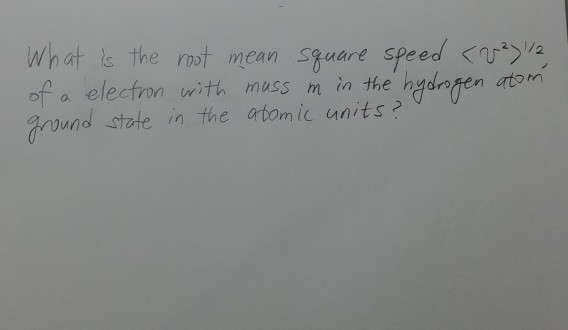 What is the root mean square speed <v²>^1/2
of a electron with mass m in the hydrogen atom
ground state in the atomic units?